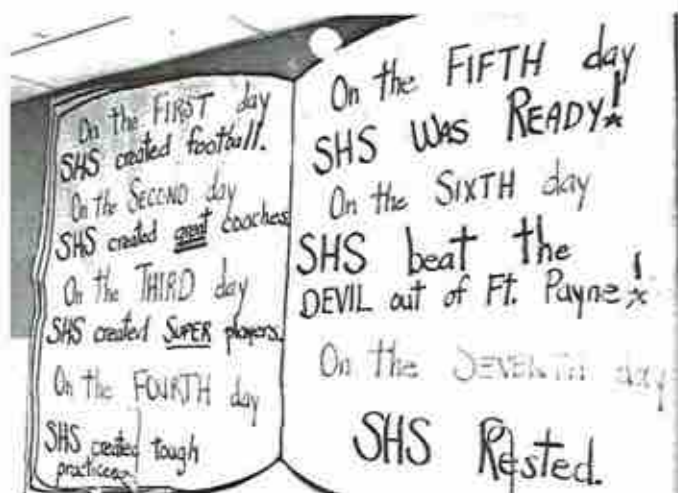 On the FIRST day
SHS created football.
On the SECOND day
SHS created great coaches
On the THIRD day
SHS created SUPER players.
On the FOURTH day
SHS created tough
practices
On the FIFTH day
SHS WAS READY!
On the SIXTH day
SHS beat the
DEVIL out of Ft. Payne!
On the SEVENTH day
SHS Rested.